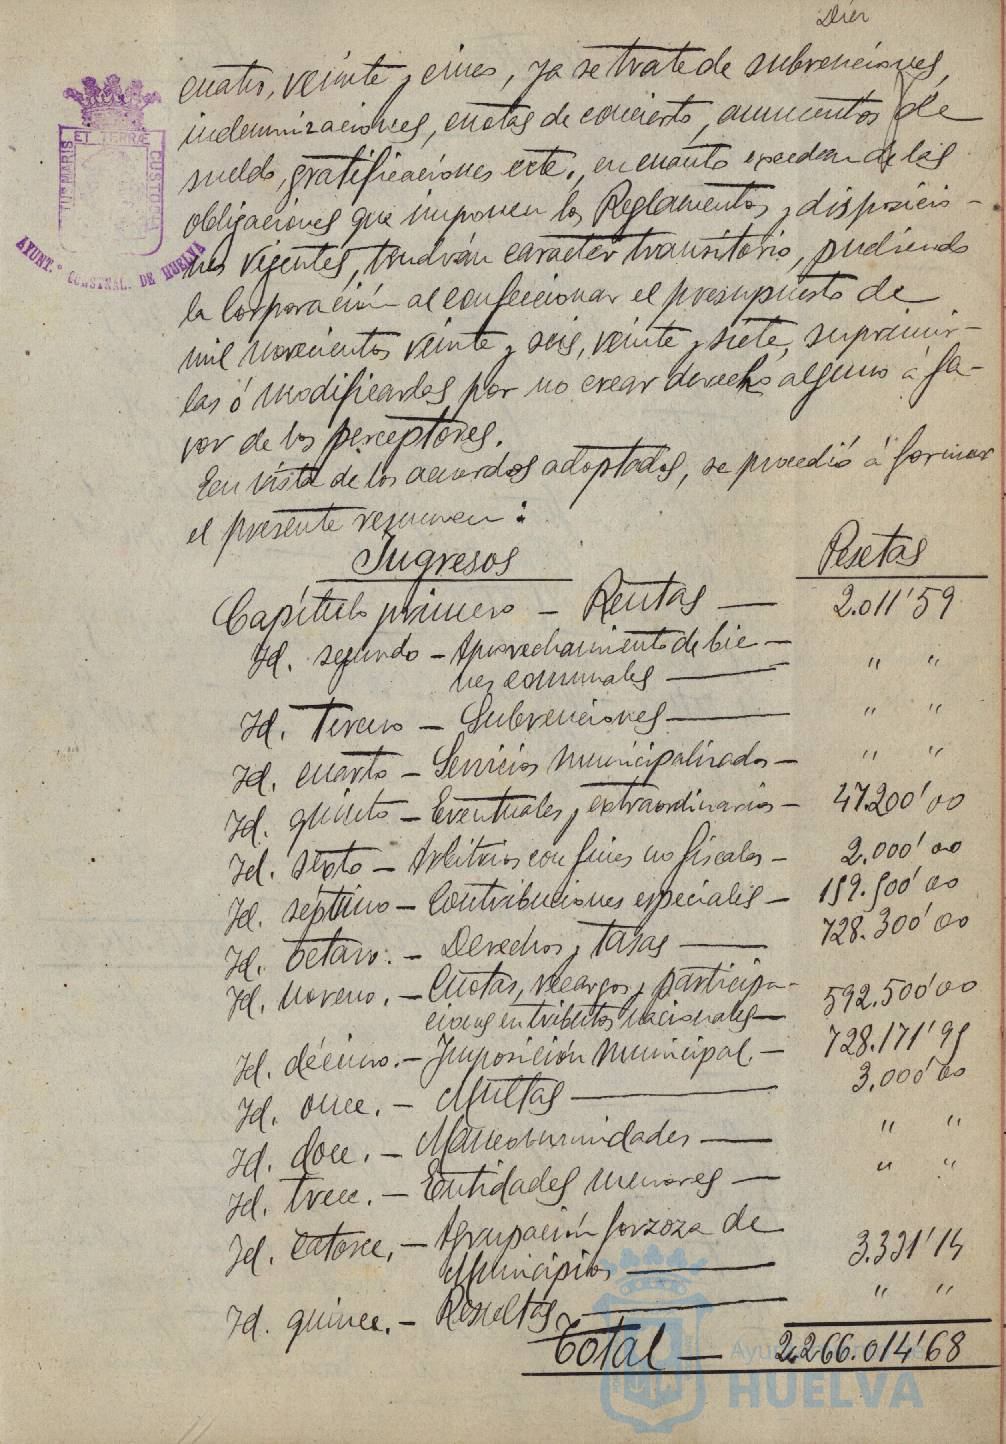 Diez
cuatro, veinte y cinco, ya se trate de subvenciones,
indemnizaciones, cuotas de concierto, aumentos de
sueldo, gratificaciones ecte., en cuanto excedan de las
obligaciones que imponen los Reglamentos y disposicio-
nes vigentes, tendrán caracter transitorio, pudiendo
la Corporación al confeccionar el presupuesto de
mil novecientos veinte y seis, veinte y siete, suprimir-
las ó modificarlas por no crear derecho alguno á fa-
vor de los perceptores.
En vista de los acuerdos adoptados, se procedió á formar
el presente resumen:
Ingresos Pesetas
Capítulo primero - Rentas — 2.011'59
Id. segundo - Aprovechamiento de bie-
nes comunales — " "
Id. tercero - Subvenciones — " "
Id. cuarto - Servicios municipalizados - " "
Id. quinto - Eventuales y extraordinarios - 47.200'00
Id. sexto - Arbitrios con fines no fiscales - 2.000'00
Id. séptimo - Contribuciones especiales - 159.500'00
Id. octavo. - Derechos y tasas — 728.300'00
Id. noveno. - Cuotas, recargos y participa-
ciones en tributos nacionales — 592.500'00
Id. décimo. - Imposición municipal. - 728.171'95
Id. once. - Multas — 3.000'00
Id. doce. - Mancomunidades — " "
Id. trece. - Entidades menores — " "
Id. catorce. - Agrupación forzoza de
Municipios — 3.331'14
Id. quince. - Resultas — " "
Total — 2.266.014'68
JUS MARIS ET TERRÆ CUSTODIA
AYUNT.º CONSTNAL. DE HUELVA
Ayuntamiento de
HUELVA